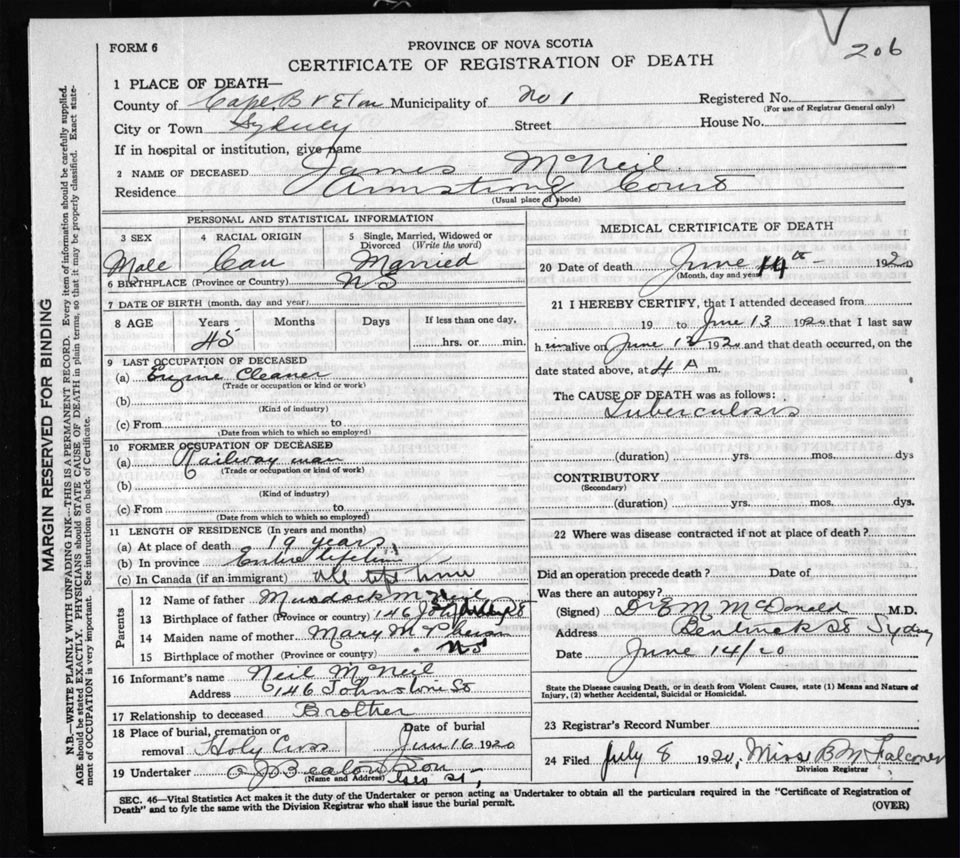 FORM 6
206
PROVINCE OF NOVA SCOTIA
CERTIFICATE OF REGISTRATION OF DEATH
1 PLACE OF DEATH—
County of Cape Breton Municipality of No 1 Registered No.
(For use of Registrar General only)
City or Town Sydney Street House No.
If in hospital or institution, give name
2 NAME OF DECEASED James McNeil
Residence Armstrong Court
(Usual place of abode)
PERSONAL AND STATISTICAL INFORMATION
3 SEX Male
4 RACIAL ORIGIN Can
5 Single, Married, Widowed or Divorced (Write the word) Married
6 BIRTHPLACE (Province or Country) NS
7 DATE OF BIRTH (month, day and year)
8 AGE Years 45 Months Days If less than one day, hrs. or min.
9 LAST OCCUPATION OF DECEASED
(a) Engine Cleaner
(Trade or occupation or kind or work)
(b)
(Kind of industry)
(c) From to
(Date from which to which so employed)
10 FORMER OCCUPATION OF DECEASED
(a) Railway man
(Trade or occupation or kind of work)
(b)
(Kind of industry)
(c) From to
(Date from which to which so employed)
11 LENGTH OF RESIDENCE (In years and months)
(a) At place of death 19 years
(b) In province Entire life
(c) In Canada (if an immigrant) all time
Parents
12 Name of father Murdock McNeil
13 Birthplace of father (Province or country)
14 Maiden name of mother Mary
15 Birthplace of mother (Province or country) NS
16 Informant's name Neil McNeil
Address 146 Johnstone St
17 Relationship to deceased Brother
18 Place of burial, cremation or removal Holy Cross
Date of burial June 16 1920
19 Undertaker A J Beaton & Son
(Name and Address) Geo St,
MEDICAL CERTIFICATE OF DEATH
20 Date of death June 14th 1920
(Month, day and year)
21 I HEREBY CERTIFY, that I attended deceased from
19 to June 13 1920 that I last saw
him alive on June 13 1920 and that death occurred, on the
date stated above, at 4 A m.
The CAUSE OF DEATH was as follows:
Tuberculosis
(duration) yrs. mos. dys
CONTRIBUTORY
(Secondary)
(duration) yrs. mos. dys.
22 Where was disease contracted if not at place of death?
Did an operation precede death? Date of
Was there an autopsy?
(Signed) Dr E M McDonald M.D.
Address Bentinck St Sydney
Date June 14/20
State the Disease causing Death, or in death from Violent Causes, state (1) Means and Nature of
Injury, (2) whether Accidental, Suicidal or Homicidal.
23 Registrar's Record Number
24 Filed July 8 1920, Miss B M Falconer
Division Registrar
SEC. 46—Vital Statistics Act makes it the duty of the Undertaker or person acting as Undertaker to obtain all the particulars required in the "Certificate of Registration of
Death" and to fyle the same with the Division Registrar who shall issue the burial permit.
(OVER)
MARGIN RESERVED FOR BINDING
N.B.—WRITE PLAINLY WITH UNFADING INK—THIS IS A PERMANENT RECORD. Every item of information should be carefully supplied.
AGE should be stated EXACTLY. PHYSICIANS should STATE CAUSE OF DEATH in plain terms, so that it may be properly classified. Exact state-
ment of OCCUPATION is very important. See instructions on back of Certificate.